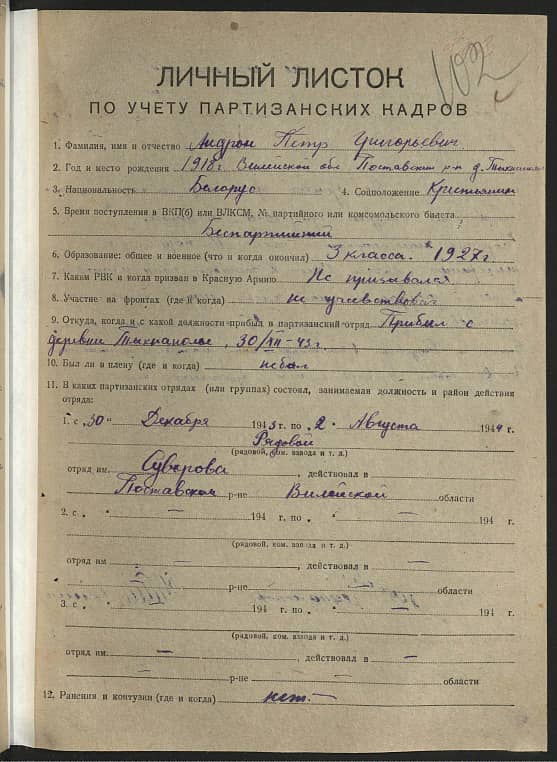 102
ЛИЧНЫЙ ЛИСТОК
ПО УЧЕТУ ПАРТИЗАНСКИХ КАДРОВ
1. Фамилия, имя и отчество Андрон Петр Григорьевич.
2. Год и место рождения 1918г Вилейской обл Поставский р-н д.
3. Национальность Белорус 4. Соцположение Крестьянин
5. Время поступления в ВКП(б) или ВЛКСМ, № партийного или комсомольского билета
Беспартийный
6. Образование: общее и военное (что и когда окончил) 3 класса. 1927г.
7. Каким РВК и когда призван в Красную Армию Не призывался.
8. Участие на фронтах (где и когда) не участвовал
9. Откуда, когда и с какой должности прибыл в партизанский отряд Прибыл с
деревни 30/XII-43г.
10. Был ли в плену (где и когда) небыл
11. В каких партизанских отрядах (или группах) состоял, занимаемая должность и район действия
отряда:
1. с „30" Декабря 1943 г. по „2" Августа 1944 г.
Рядовой
(рядовой, ком. взвода и т. д.)
отряд им. Суворова, действовал в
Поставском р-не Вилейской области
2. с „ " — 194 г. по „ " — 194 г.
(рядовой, ком. взвода и т. д.)
отряд им — действовал в —
— р-не — области
3. с „ " — 194 г. по „ " — 194 г.
(рядовой, ком. взвода и т. д.)
отряд им. — , действовал в —
— р-не — области
12. Ранения и контузии (где и когда) нет. —